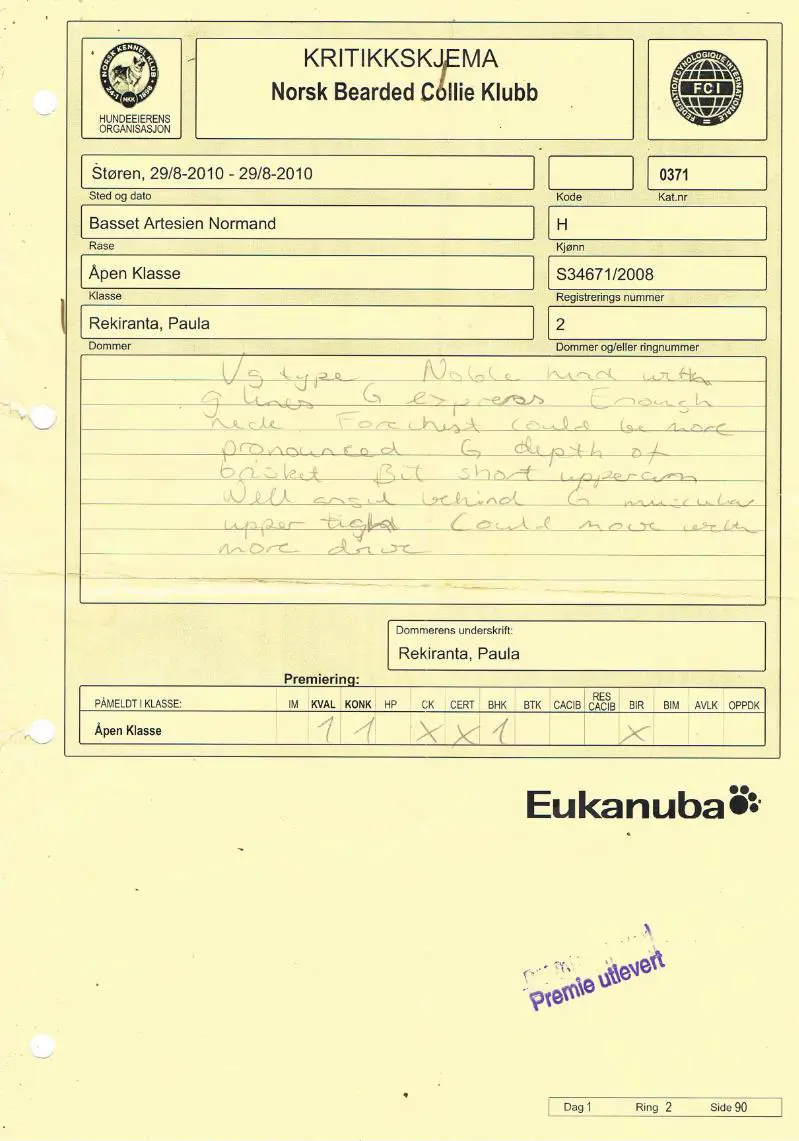 NORSK KENNEL KLUB
24-1 NKK 1898
HUNDEEIERENS
ORGANISASJON
KRITIKKSKJEMA
Norsk Bearded Collie Klubb
FEDERATION CYNOLOGIQUE INTERNATIONALE
FCI
Støren, 29/8-2010 - 29/8-2010
0371
Sted og dato
Kode
Kat.nr
Basset Artesien Normand
H
Rase
Kjønn
Åpen Klasse
S34671/2008
Klasse
Registrerings nummer
Rekiranta, Paula
2
Dommer
Dommer og/eller ringnummer
Vg type Noble hind with
g lines G express Enough
neck Forechest could be more
pronounced G depth of
brisket Bit short upperarm
Well angul behind G muscular
upper tight Could move with
more drive
Dommerens underskrift:
Rekiranta, Paula
Premiering:
PÅMELDT I KLASSE: IM KVAL KONK HP CK CERT BHK BTK CACIB RES CACIB BIR BIM AVLK OPPDK
Åpen Klasse 1 1 X X 1 X
Eukanuba
Premie utlevert
Dag 1 Ring 2 Side 90